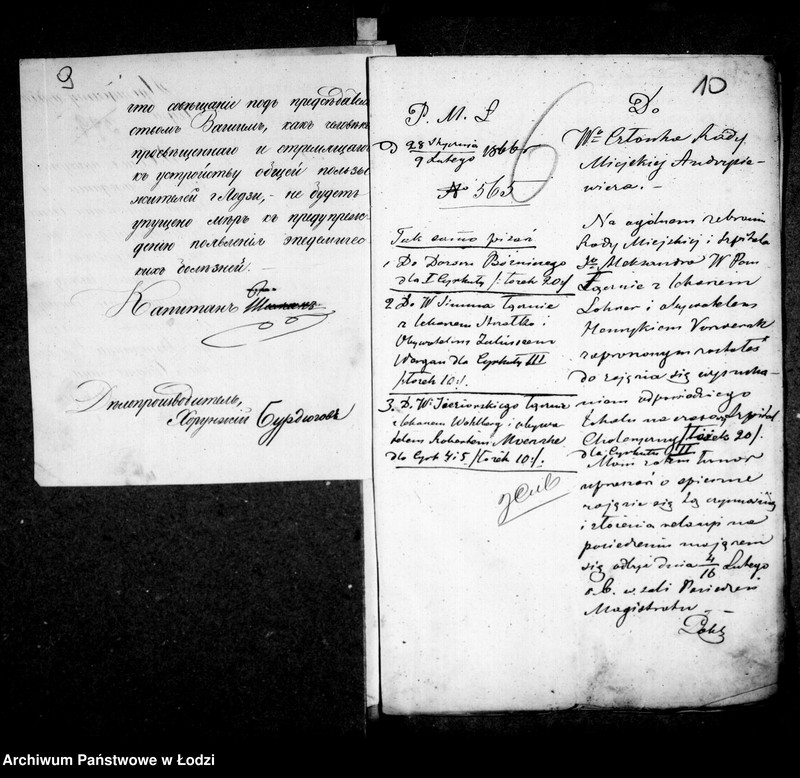 9
что совещанie подъ предсѣдатель
ствомъ Вашимъ, какъ человѣка
просвѣщеннаго и стремящагося
къ устройству общей пользы
жителей г Лодзи, – не будетъ
упущено мѣръ къ предупреж-
денію появленія эпедемичес-
кихъ болѣзней. —
Капитанъ
Дѣлопроизводитель,
Хорунжій Бурдюговъ
10
P. M. Ł
D 28 Stycznia / 9 Lutego 1866
No 565
6
Tak samo pisać
1, Do Dozoru Bóżniczego
dla I Cyrkułu /: łóżek 20 :/
2 Do W łącznie
z lekarzem i
Obywatelem
dla Cyrkułu III
/: łóżek 10 :/
3. D. W. Jeziorskiego łącznie
z lekarzem Wohlberg i obywa
telem Robertem
dla Cyrk 4 i 5 /: łóżek 10 :/
Do
Wo Członka Rady
Miejskiej Andrzeia-
wicza. –
Na ogólnem zebraniu
Rady Miejskiej i Szpitala
So Aleksandra W Pan
łącznie z lekarzem
Lohrer i obywatelem
Henrykiem
zaproszonym zostałeś
do zajęcia się wyszuka-
niem odpowiedniego
lokalu na czasowy Szpital
Choleryczny /: łóżek 20 /.
dla Cyrkułu II
Mam zatem honor
upraszać o spieszne
zajęcie się tą czynnością
i złożenia relacyi na
posiedzeniu mającem
się odbyć dnia 4/16 Lutego
r. b. w sali Posiedzeń
Magistratu. –
Archiwum Państwowe w Łodzi